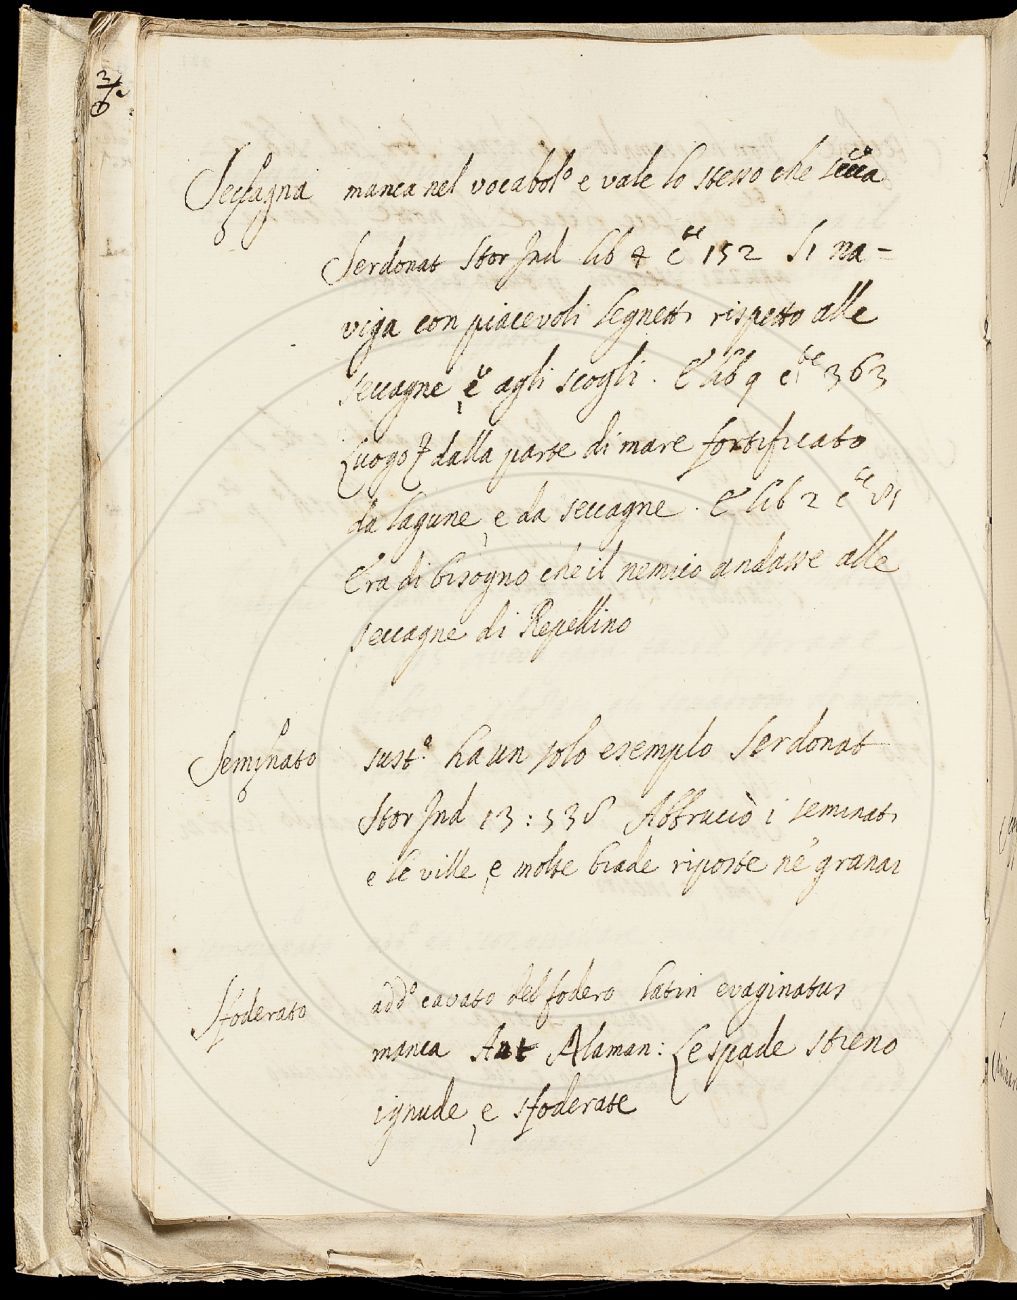 Seccagna manca nel vocabol.o e vale lo stesso che secca
Serdonat Stor Ind lib 4 c.te 152 Si na-
viga con piacevoli legnetti rispetto alle
seccagne, e agli scogli. E lib 9 c.te 363
Luogo dalla parte di mare fortificato
da lagune, e da seccagne. E lib 2 c.te 81
Era di bisogno che il nemico andasse alle
seccagne di Repellino
Seminato sust.o ha un solo esemplo Serdonat
Stor Ind 13: 536 Abbruciò i seminati
e le ville, e molte biade riposte ne' granai
Sfoderato add.o cavato del fodero latin evaginatus
manca Ant Alaman: Le spade stieno
ignude, e sfoderate